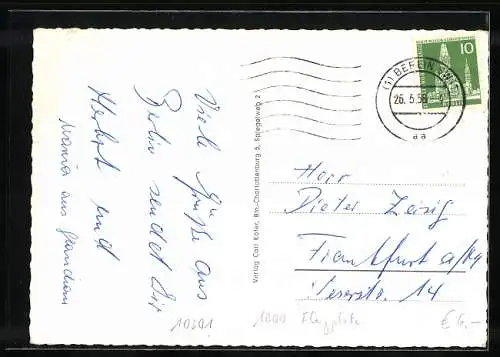 Viele Grüße aus
Berlin sendet Dir
Herbst und
Maria aus
Verlag Carl Köfer, Bln-Charlottenburg 5, Spiegelweg 2
10
(1) BERLIN SW
26. 5. 58
aa
Herr
Dieter Zeisig
Frankfurt a/M
Weserstr. 14
10301
1000 Flugplatz
€ 6.-